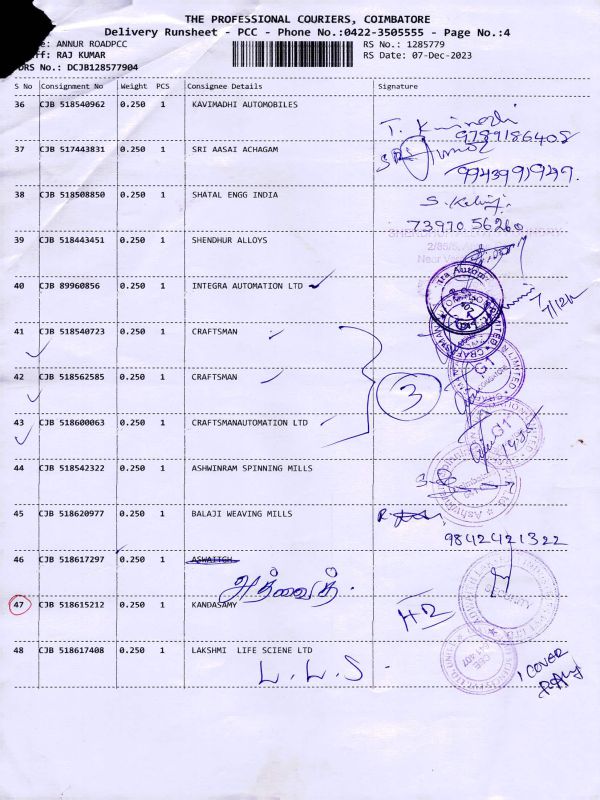 THE PROFESSIONAL COURIERS, COIMBATORE
Delivery Runsheet - PCC - Phone No.:0422-3505555 - Page No.:4
: ANNUR ROADPCC RS No.: 1285779
: RAJ KUMAR RS Date: 07-Dec-2023
DRS No.: DCJB128577904
S No Consignment No Weight PCS Consignee Details Signature
36 CJB 518540962 0.250 1 KAVIMADHI AUTOMOBILES
9789186408
37 CJB 517443831 0.250 1 SRI AASAI ACHAGAM
9943991949.
38 CJB 518508850 0.250 1 SHATAL ENGG INDIA
73970 56260
39 CJB 518443451 0.250 1 SHENDHUR ALLOYS
40 CJB 89960856 0.250 1 INTEGRA AUTOMATION LTD
7/12/
41 CJB 518540723 0.250 1 CRAFTSMAN
42 CJB 518562585 0.250 1 CRAFTSMAN
3
43 CJB 518600063 0.250 1 CRAFTSMANAUTOMATION LTD
44 CJB 518542322 0.250 1 ASHWINRAM SPINNING MILLS
45 CJB 518620977 0.250 1 BALAJI WEAVING MILLS
9842421322
46 CJB 518617297 0.250 1
அத்வைத்.
47 CJB 518615212 0.250 1 KANDASAMY
48 CJB 518617408 0.250 1 LAKSHMI LIFE SCIENE LTD
L.L.S
1 COVER